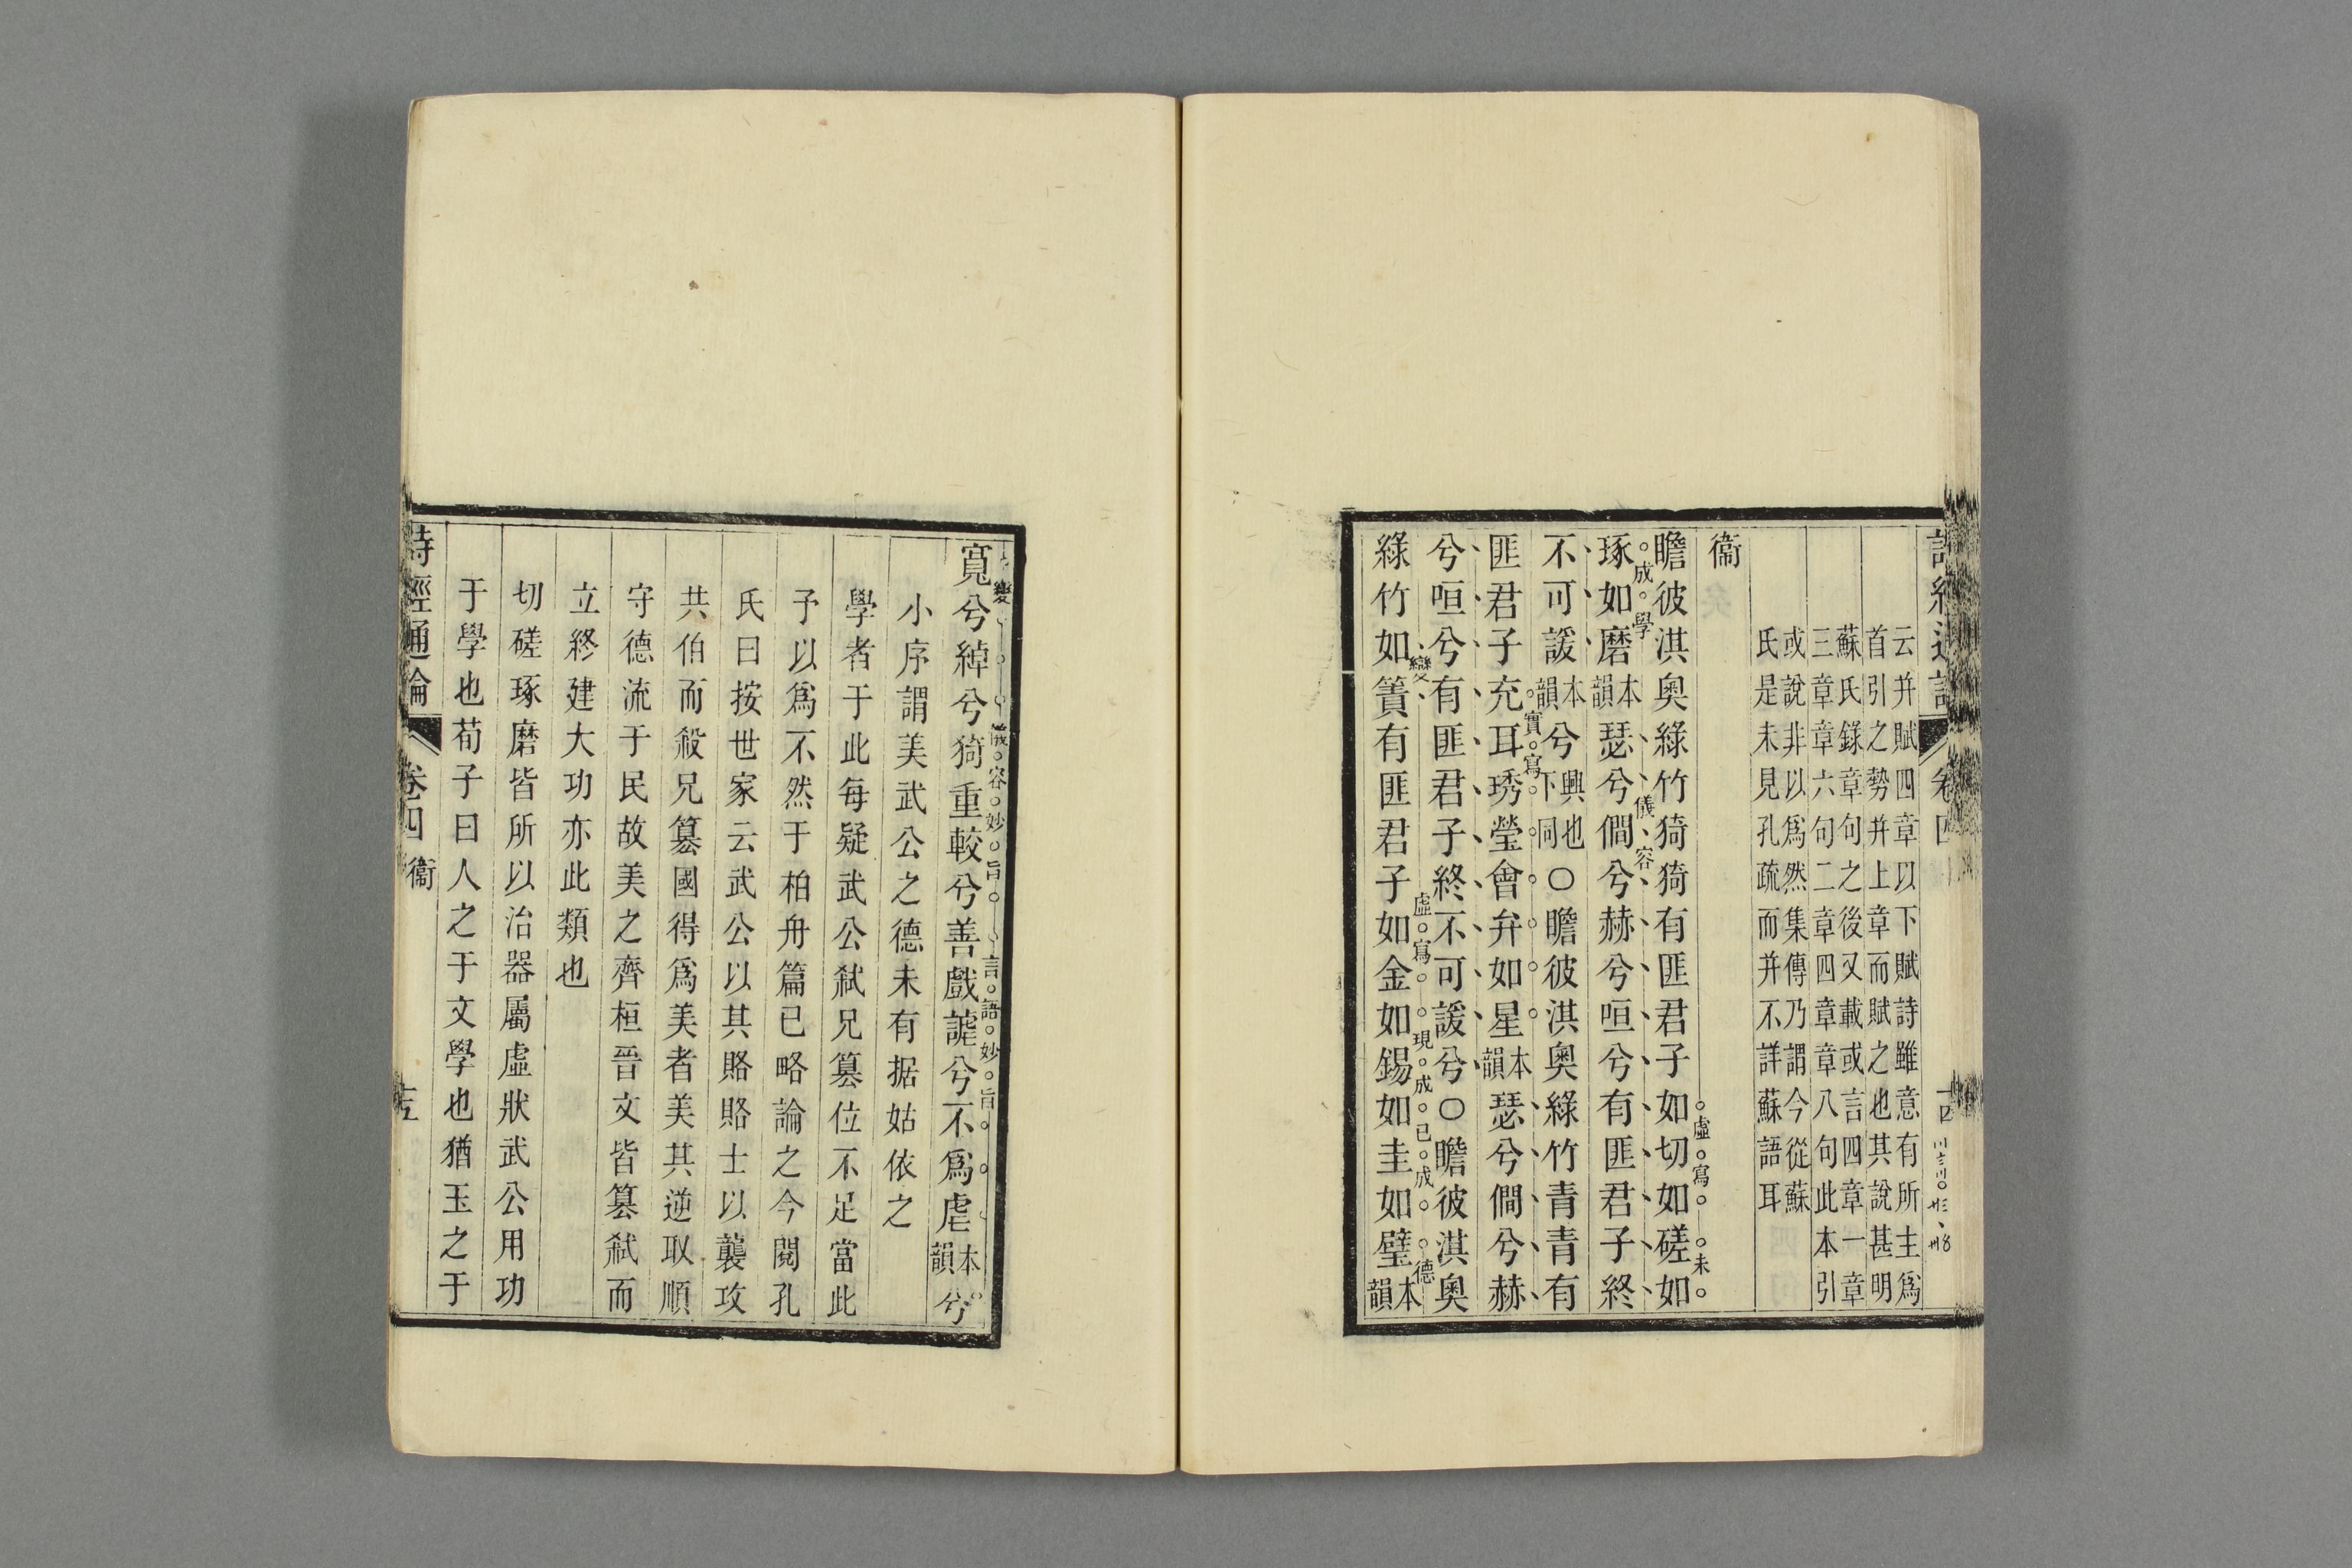 云幷賦四章以下賦詩雖意有所主爲
首引之勢幷上章而賦之也其說甚明
蘇氏錄章句之後又載或言四章一章
三章章六句二章四章章八句此本引
或說非以爲然集傳乃謂今從蘇
氏是未見孔疏而幷不詳蘇語耳
衞
虛寫 未
瞻彼淇奧綠竹猗猗有匪君子如切如磋如
成學 儀容
琢如磨本韻瑟兮僩兮赫兮咺兮有匪君子終
不可諼本韻兮興也下同○瞻彼淇奧綠竹青青有
實寫
匪君子充耳琇瑩會弁如星本韻瑟兮僩兮赫
兮咺兮有匪君子終不可諼兮○瞻彼淇奧
變 虛寫 現成已成 德
綠竹如簀有匪君子如金如錫如圭如璧本韻
變 儀容妙旨 言語妙旨
寬兮綽兮猗重較兮善戲謔兮不爲虐本韻兮
小序謂美武公之德未有据姑依之
學者于此每疑武公弑兄篡位不足當此
予以爲不然于柏舟篇已略論之今閱孔
氏曰按世家云武公以其賂賂士以襲攻
共伯而殺兄篡國得爲美者美其逆取順
守德流于民故美之齊桓晉文皆篡弑而
立終建大功亦此類也
切磋琢磨皆所以治器屬虛狀武公用功
于學也荀子曰人之于文學也猶玉之于
詩經通論 卷四 衞